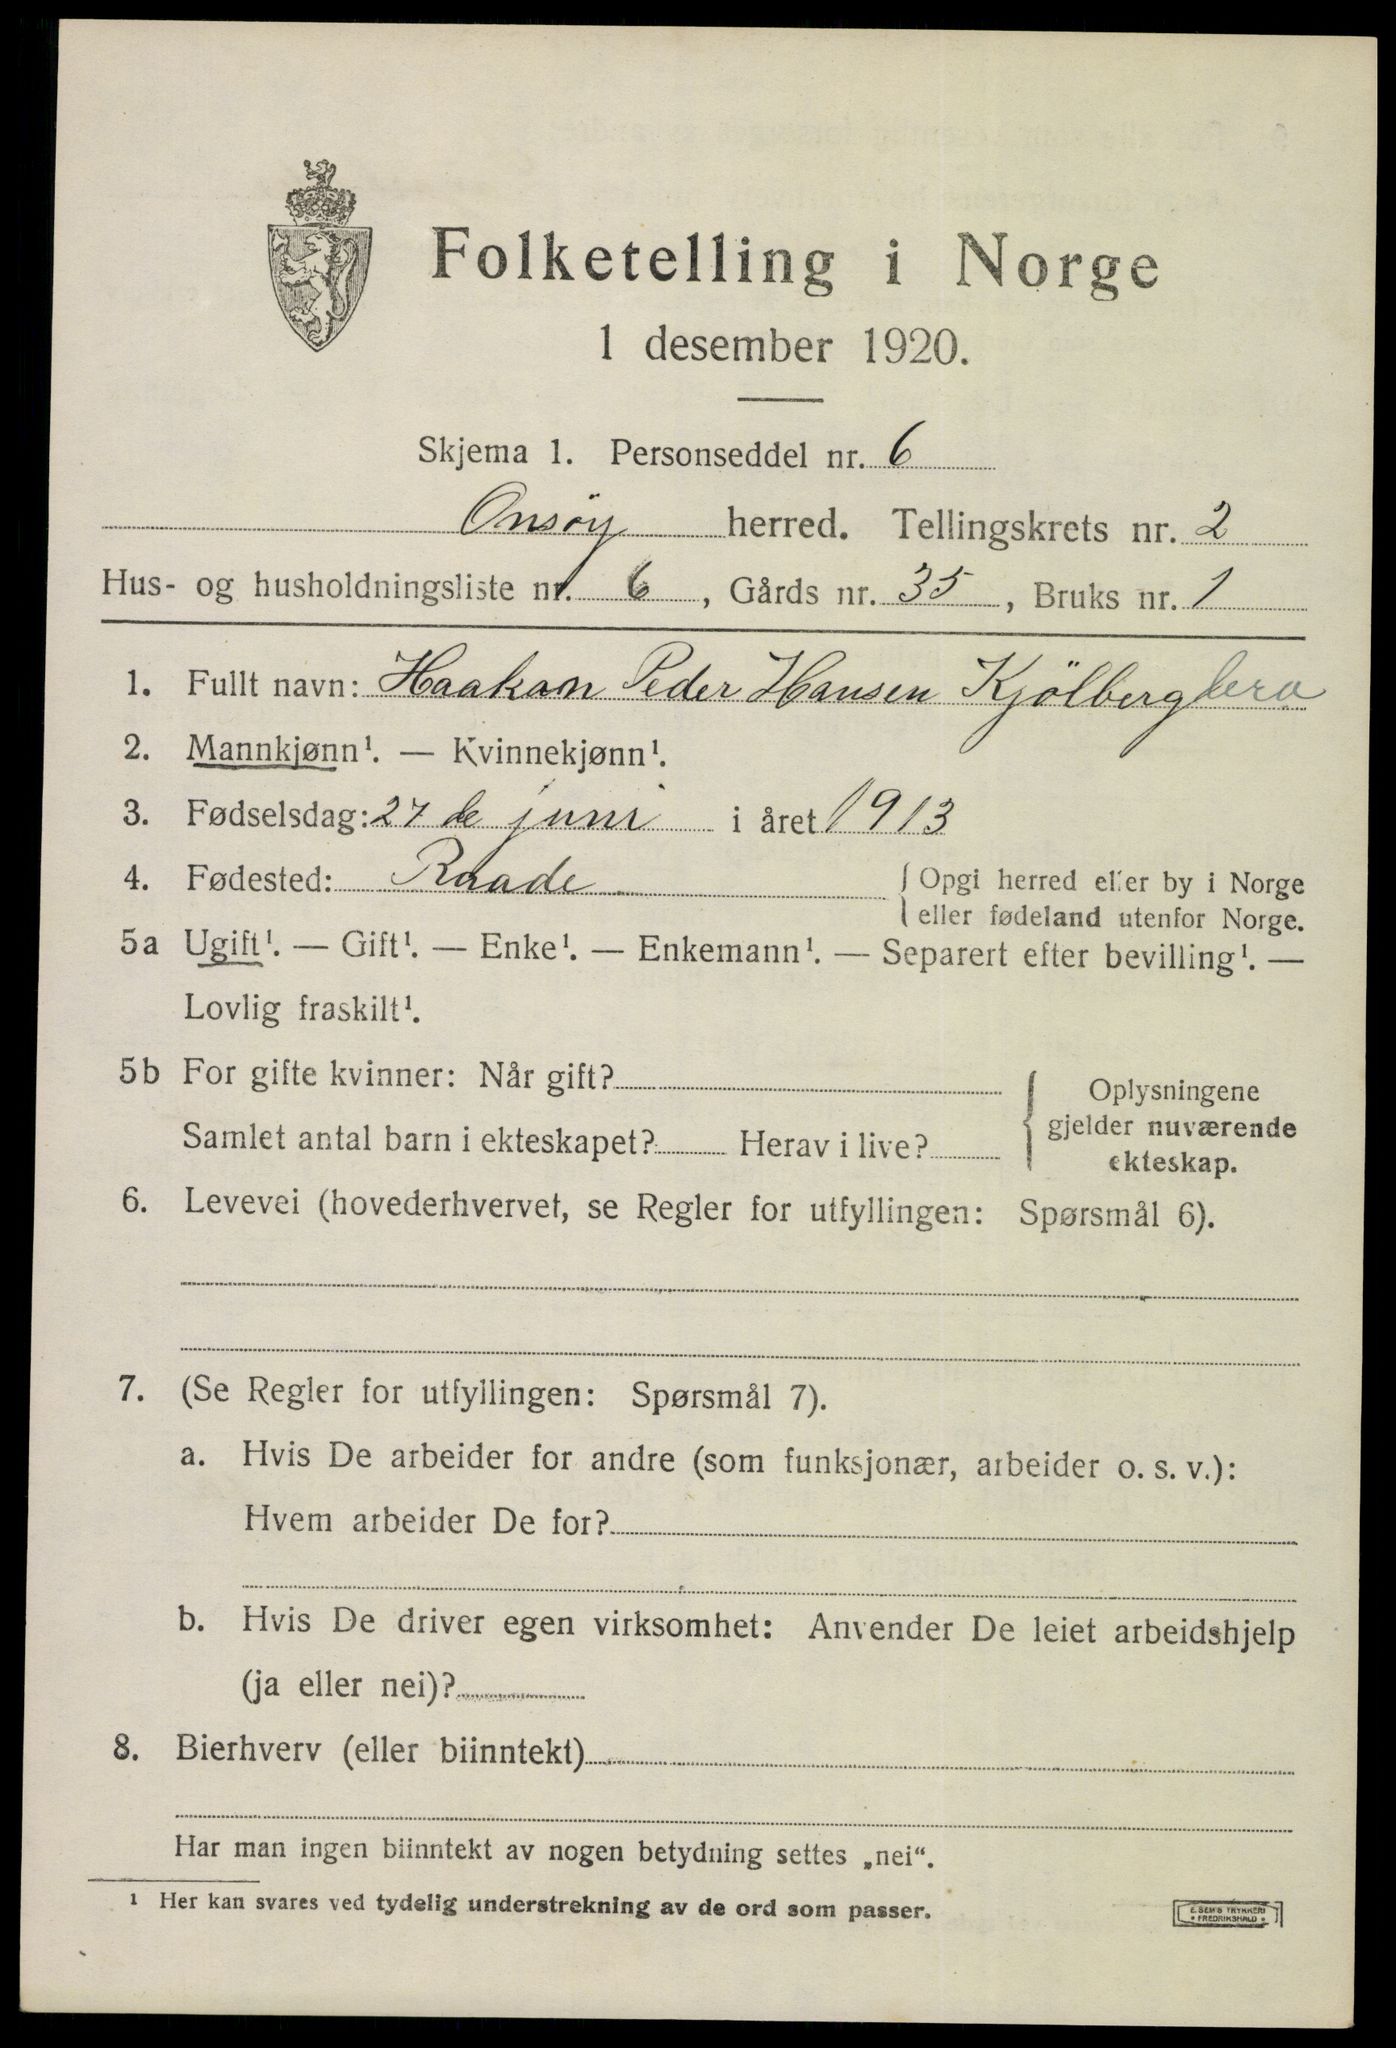 Folketelling i Norge
1 desember 1920.
Skjema 1. Personseddel nr. 6
Onsøy herred. Tellingskrets nr. 2
Hus- og husholdningsliste nr. 6, Gårds nr. 35, Bruks nr. 1
1. Fullt navn: Haakon Peder Hansen Kjölberg
2. Mannkjønn¹. — Kvinnekjønn¹.
3. Fødselsdag: 27 de juni i året 1913
4. Fødested: Raade { Opgi herred eller by i Norge
eller fødeland utenfor Norge.
5a Ugift¹. — Gift¹. — Enke¹. — Enkemann¹. — Separert efter bevilling¹. —
Lovlig fraskilt¹.
5b For gifte kvinner: Når gift?
Samlet antal barn i ekteskapet? Herav i live?
Oplysningene
gjelder nuværende
ekteskap.
6. Levevei (hovederhvervet, se Regler for utfyllingen: Spørsmål 6).
7. (Se Regler for utfyllingen: Spørsmål 7).
a. Hvis De arbeider for andre (som funksjonær, arbeider o. s. v.):
Hvem arbeider De for?
b. Hvis De driver egen virksomhet: Anvender De leiet arbeidshjelp
(ja eller nei)?
8. Bierhverv (eller biinntekt)
Har man ingen biinntekt av nogen betydning settes „nei“.
¹ Her kan svares ved tydelig understrekning av de ord som passer.
E. SEM'S TRYKKERI
FREDRIKSHALD